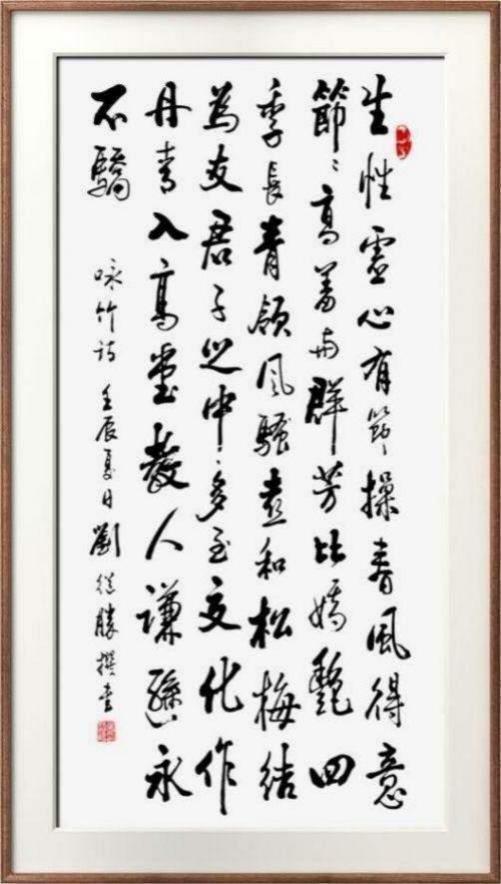 生性虛心有節操春風得意
節々高羞与群芳比嬌艷四
季長青領風騷喜和松梅結
為友君子之中多至交化作
丹青入高堂教人謙遜永
不驕
咏竹诗 壬辰夏日劉從勝撰書